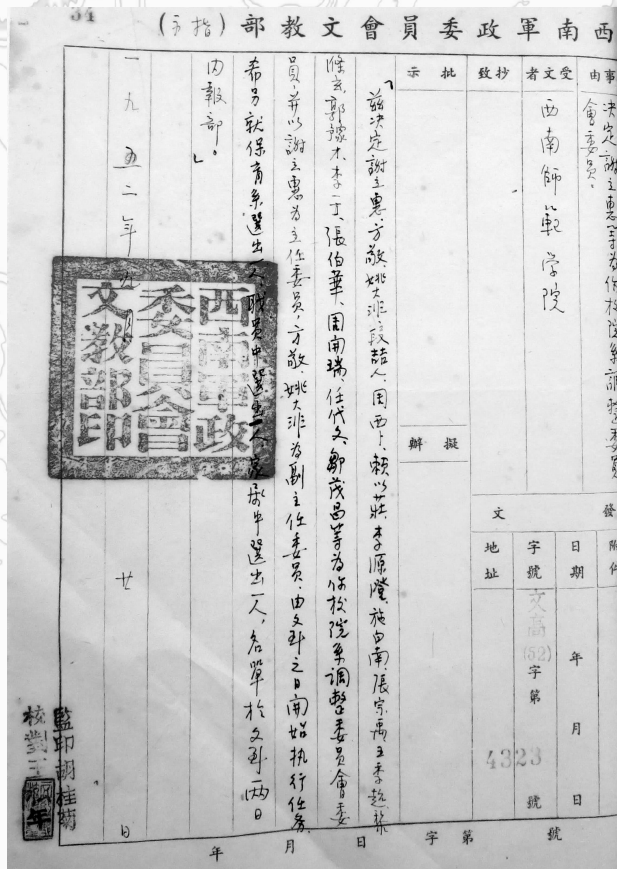 34
西南軍政委員會文教部(指示)
事由
決定謝立惠等為你校院系調整委員
會委員。
受文者
西南師範学院
抄致
批示
擬辦
發文
附件
日期
年
月
日
字號
文高
(52)
字第
4323
號
地址
「茲决定謝立惠、方敬、姚大非、段喆人、周西卜、賴以莊、李源澄、施白南、張宗禹、王季超、
郭豫才、李一丁、張伯華、周開瑞、任代文、鄒茂昌等為你校院系調整委員會委
員,并以謝立惠為主任委員,方敬、姚大非為副主任委員,由文到之日開始执行任务,
希另就保育系選出一人,職員中選出一人,家屬中選出一人,名單於文到一兩日
内報部。」
一九五二年九月
廿
日
西南軍政
委員會
文教部印
監印胡桂菊
校對王
年
月
日
字
第
號